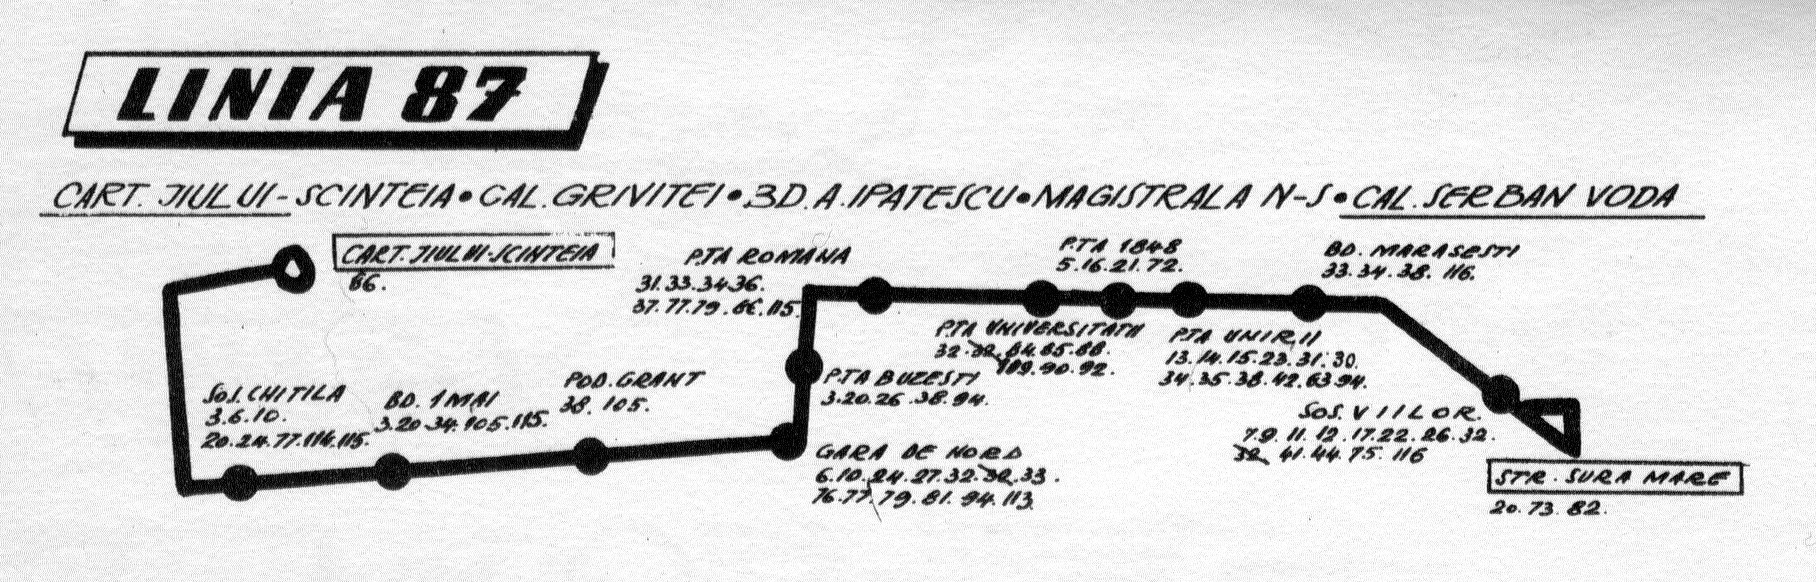 LINIA 87
CART. JIULUI-SCINTEIA•CAL.GRIVITEI•BD.A.IPATESCU•MAGISTRALA N-S•CAL.SERBAN VODA
CART.JIULUI-SCINTEIA
86.
P.TA ROMANA
31.33.34.36.
37.77.79.86.115.
P.TA 1848
5.16.21.72.
BD. MARASESTI
33.34.38. 116.
P.TA UNIVERSITATII
32.32.84.85.88.
109.90.92.
P.TA UNIRII
13.14.15.23.31.30.
34.35.38.42.63.94.
SOS.CHITILA
3.6.10.
20.24.77.114.115.
BD. 1 MAI
3.20.34.105.115.
POD.GRANT
38. 105.
P.TA BUZESTI
3.20.26.38.94.
GARA DE NORD
6.10.24.27.32.32.33.
76.77.79.81.94.113
SOS.VIILOR.
7.9.11.12.17.22.26.32.
32.41.44.75.116
STR. SURA MARE
20.73.82.